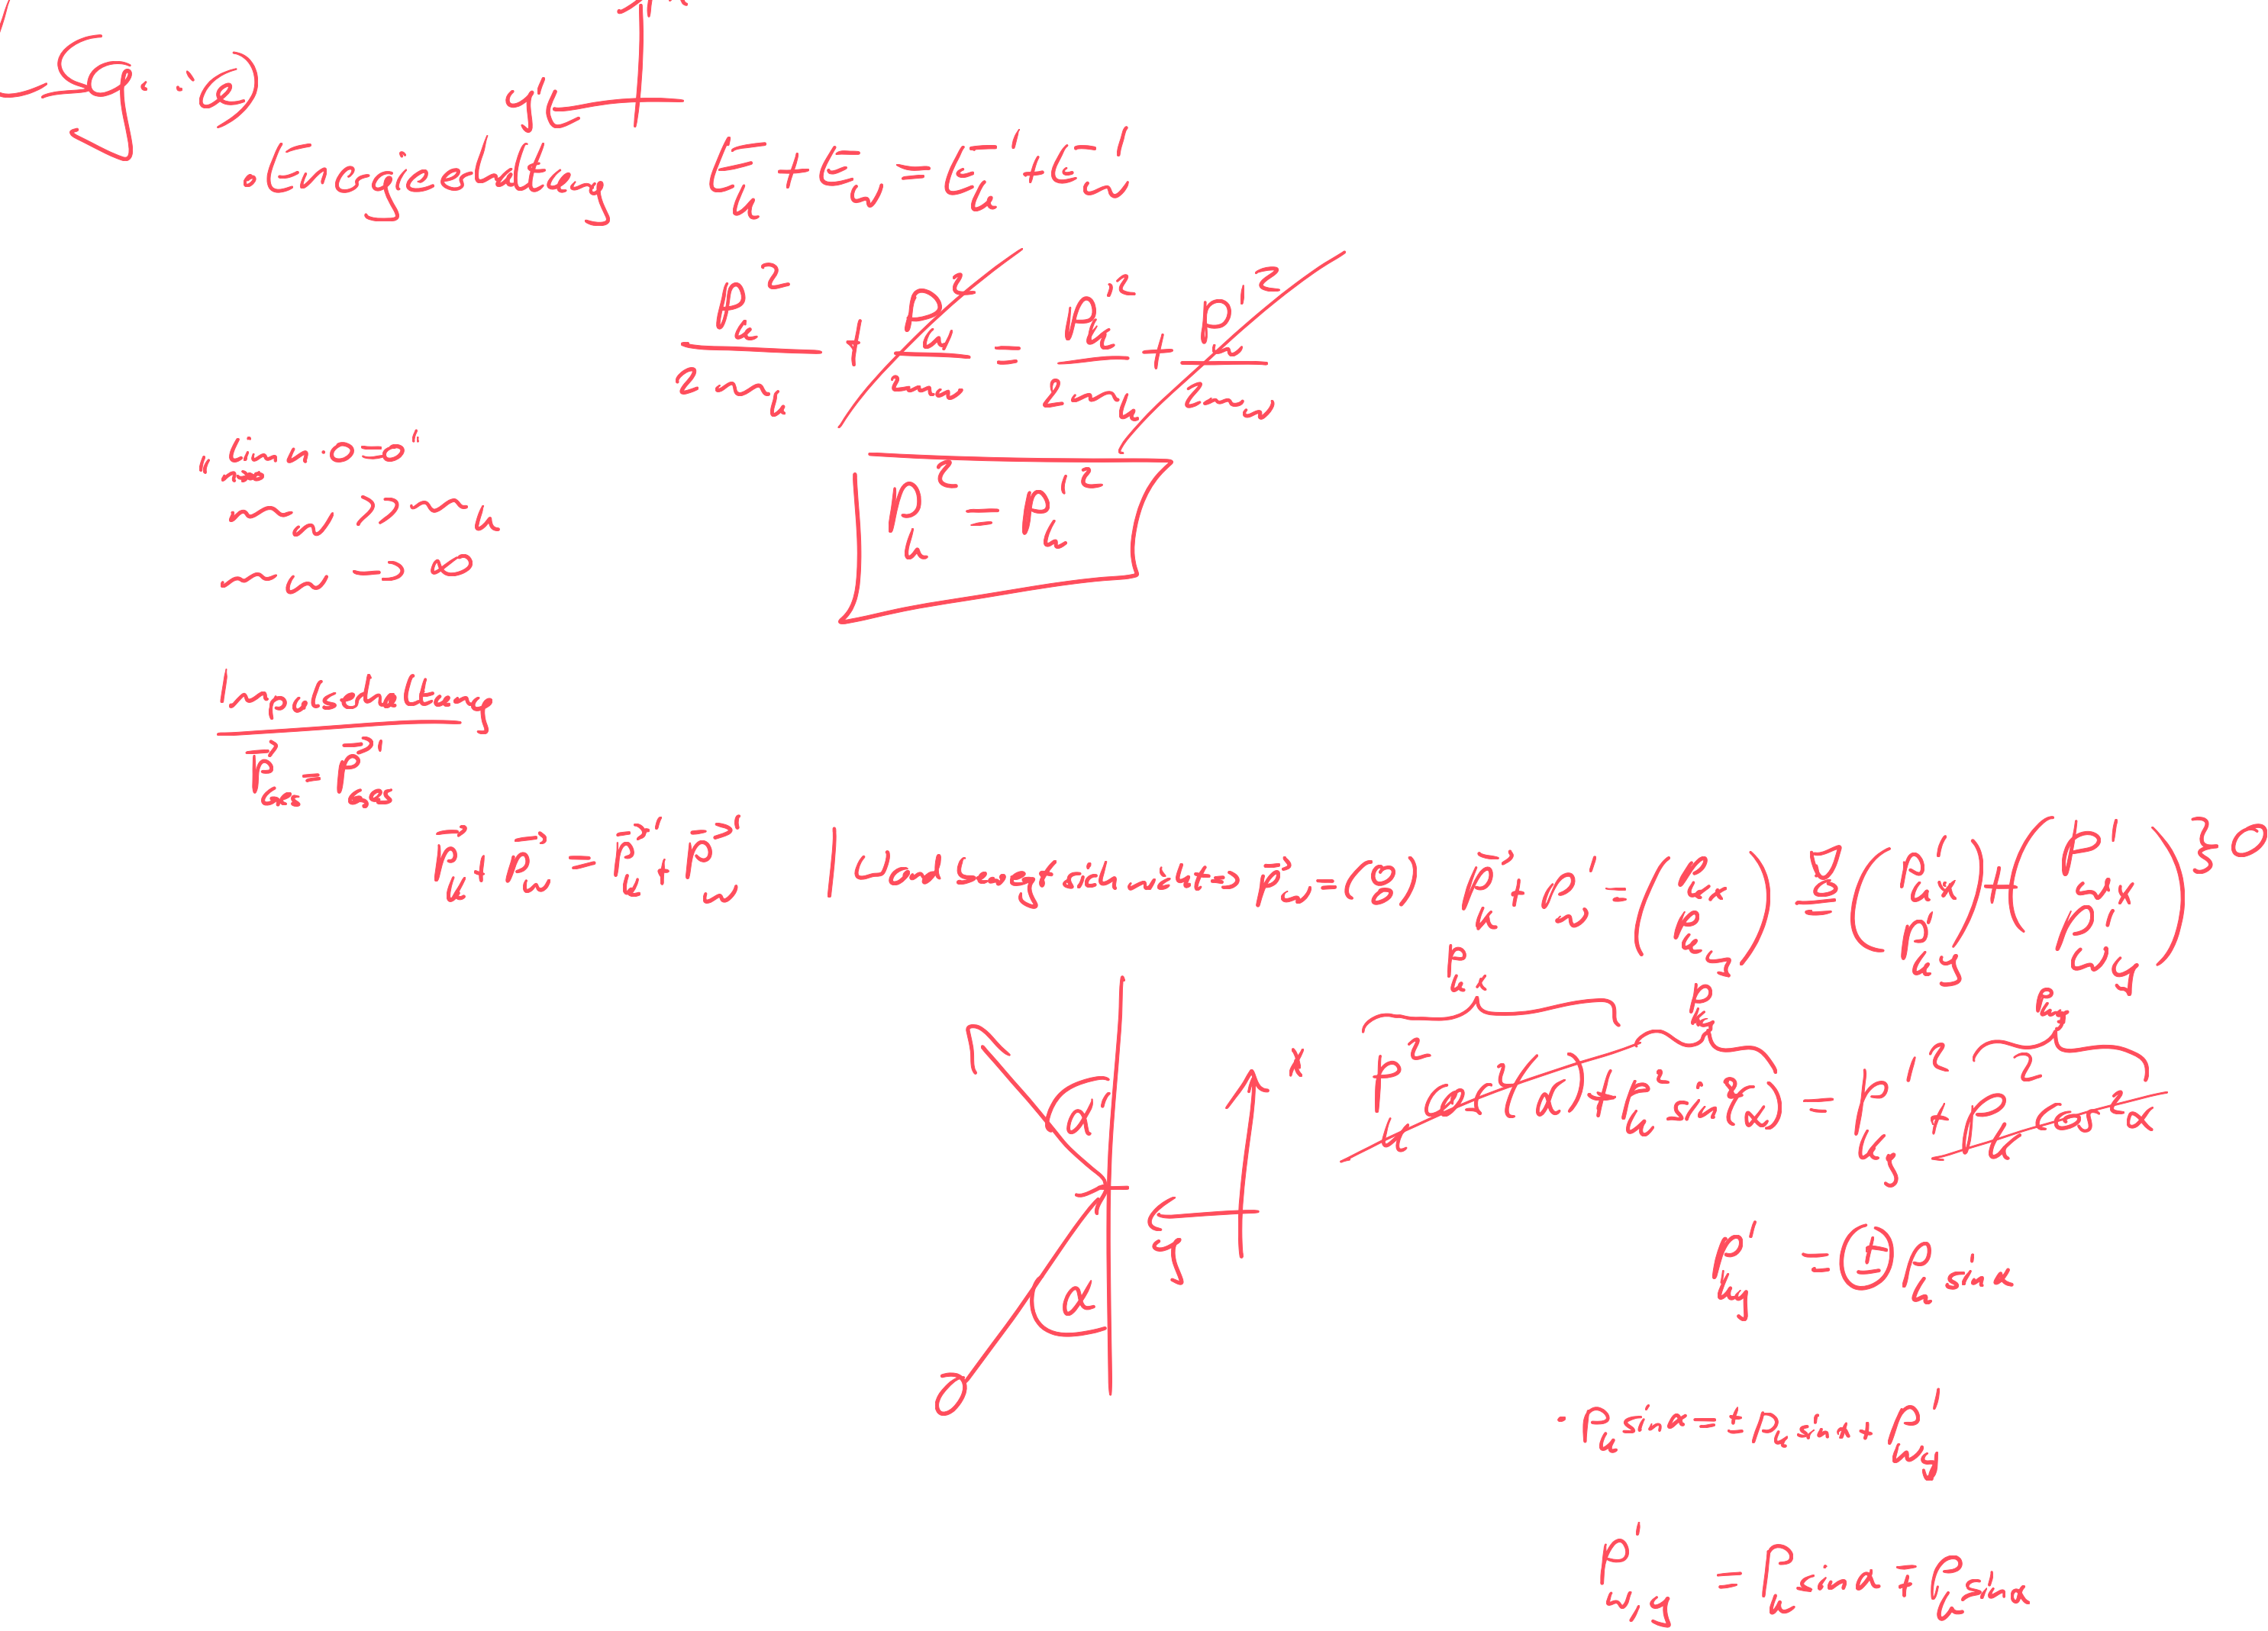 y'
• Energieerhaltung E_k + E_w = E_k' + E_w'
p_k²/2m_k + p_w²/2m_w = p_k'²/2m_k + p_w'²/2m_w
"lim n·0=0"
n→∞
m_w >> m_k
p_k² = p_k'²
m_w → ∞
Impulserhaltung
p⃗_ges = p⃗_ges'
p⃗_k + p⃗_w = p⃗_k' + p⃗_w' | Wand bewegt sich nicht → p⃗_w = (0 0)
(p_kx p_ky) = (p_kx' p_ky') + (p_wx' p_wy') } 0
p_kx
p_ky
p_kx
x
p_k² cos²(α) + p_k² sin²(α) = p_ky'² + p_k² cos²α
α'
y
p_ky' = ± p_k sin α
α
· p_k sin α = ± p_k sin α + p_wy'
p_w,y' = p_k sin α ∓ p_k sin α